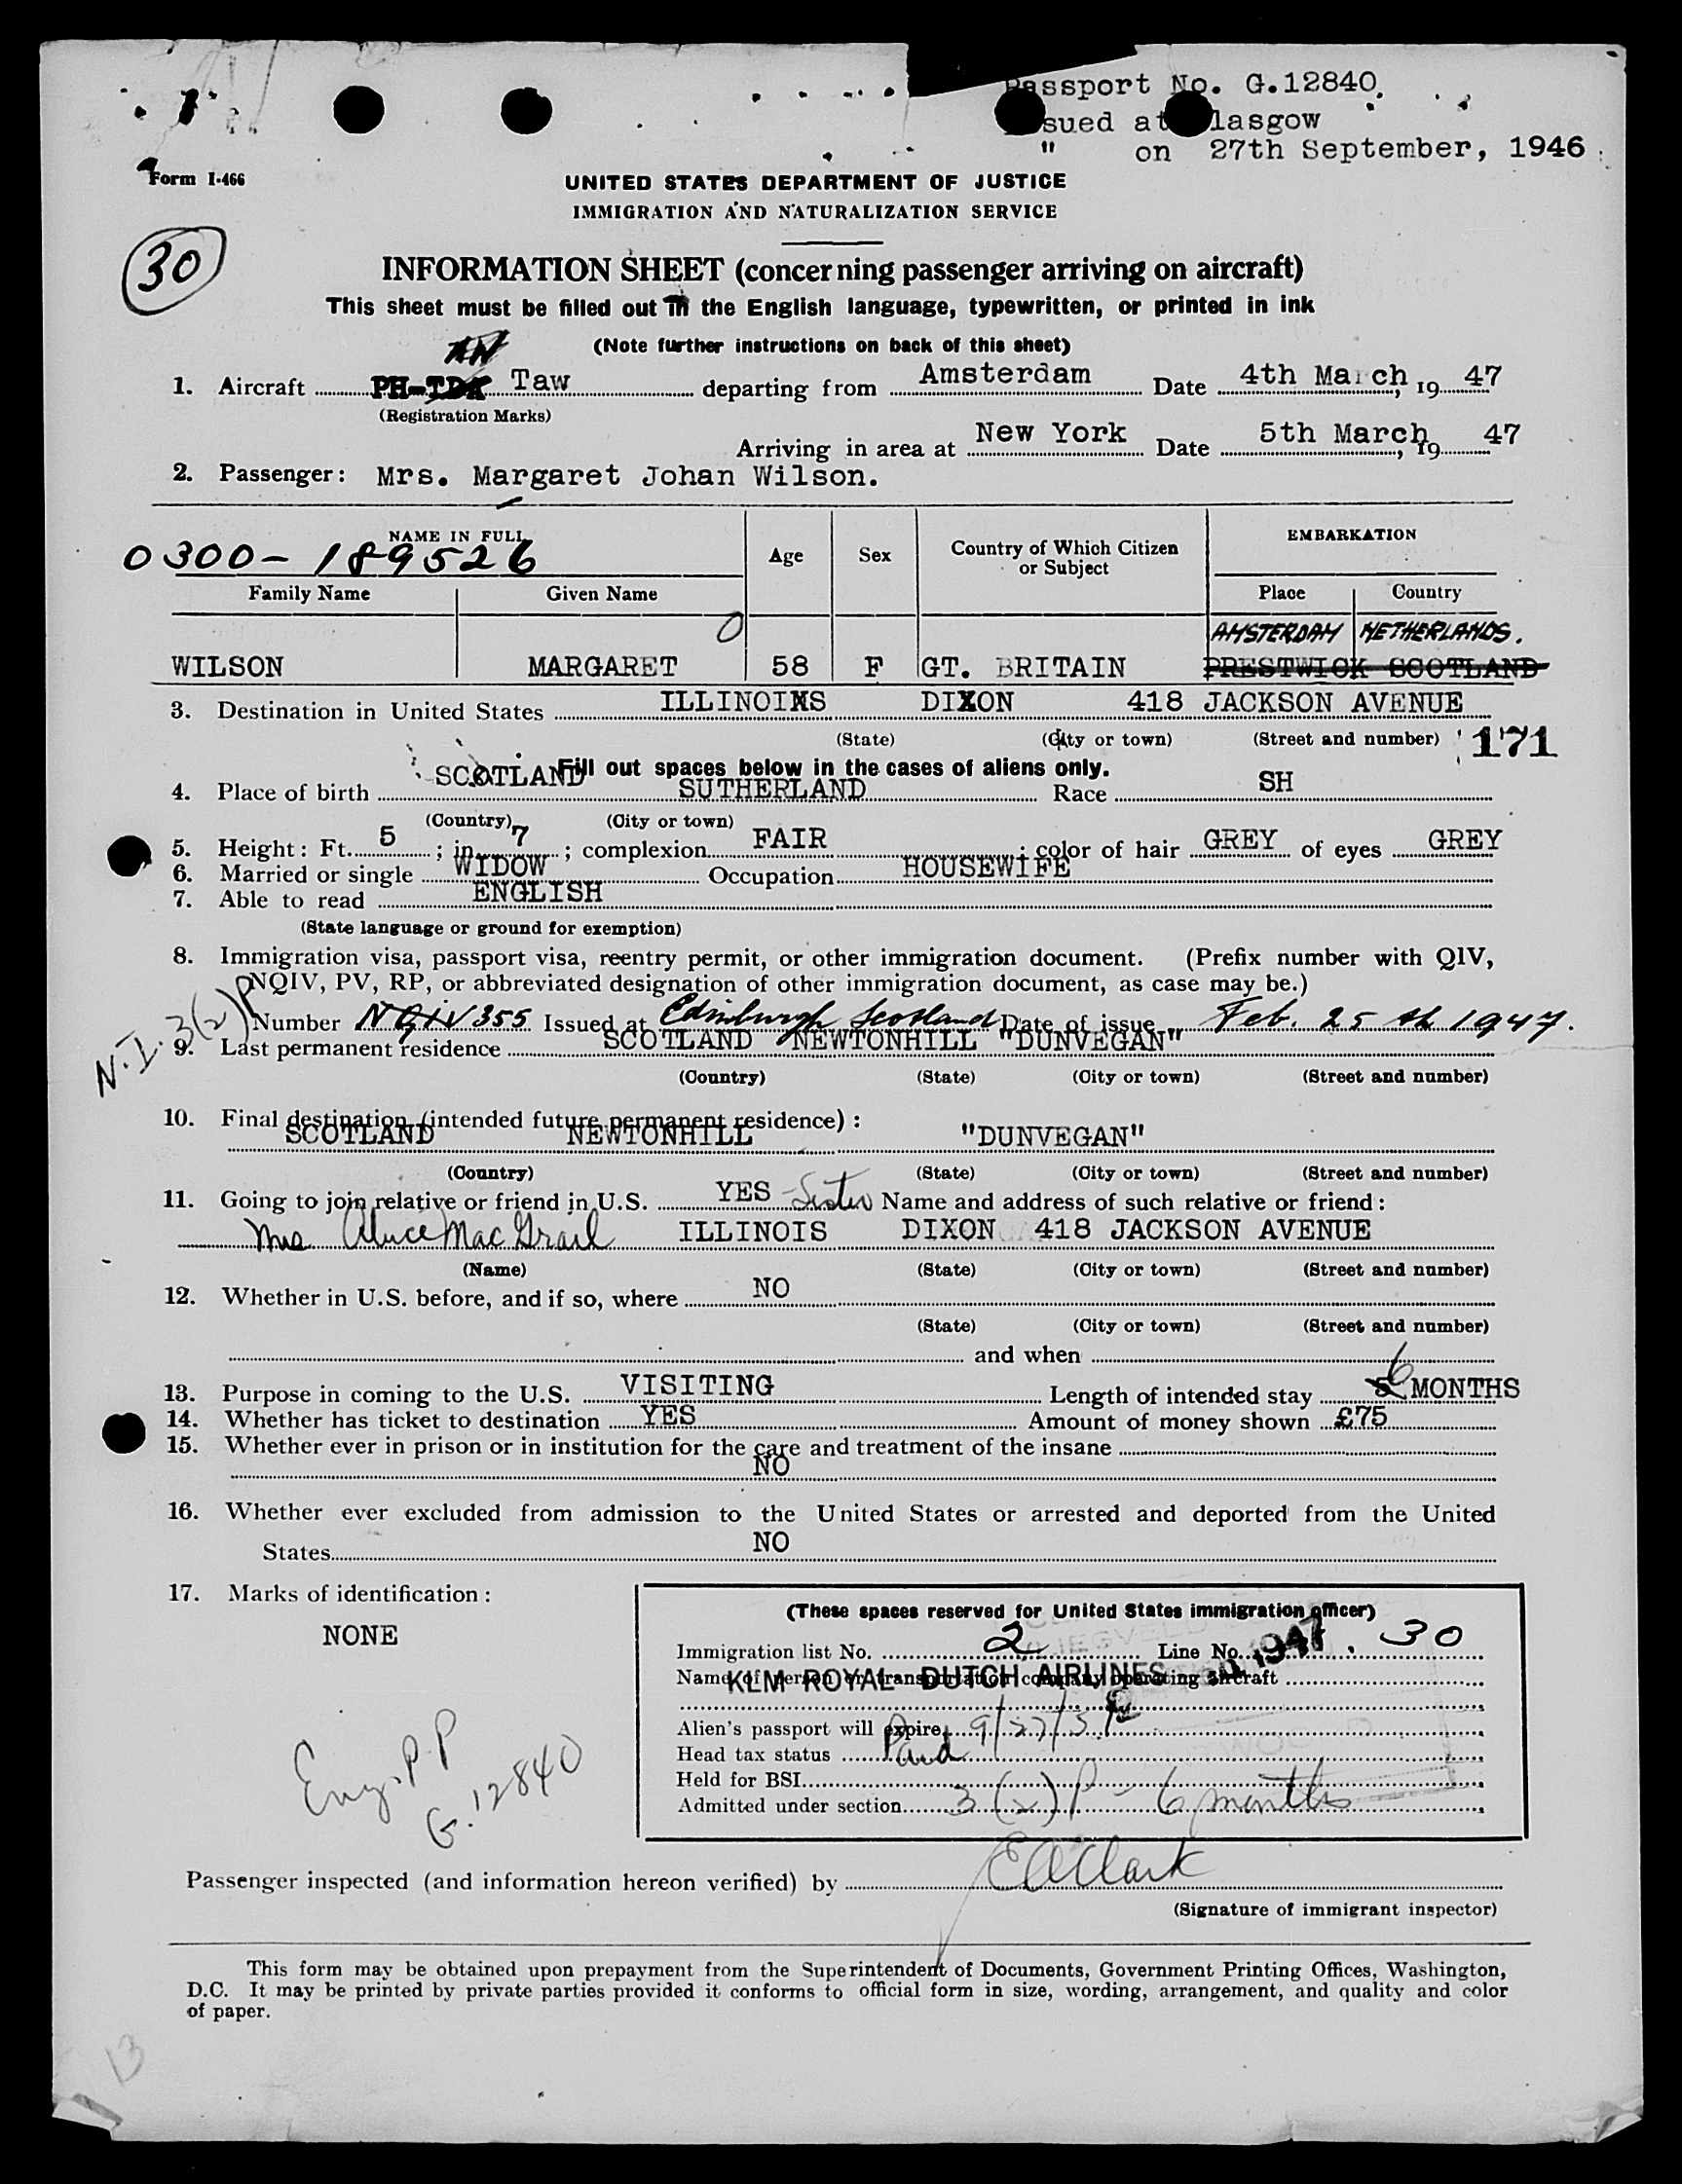 Passport No. G.12840.
sued at lasgow
" on 27th September, 1946
Form I-466
UNITED STATES DEPARTMENT OF JUSTICE
IMMIGRATION AND NATURALIZATION SERVICE
30
INFORMATION SHEET (concerning passenger arriving on aircraft)
This sheet must be filled out in the English language, typewritten, or printed in ink
(Note further instructions on back of this sheet)
1. Aircraft PH- Taw departing from Amsterdam Date 4th March, 19 47
(Registration Marks)
Arriving in area at New York Date 5th March, 19 47
2. Passenger: Mrs. Margaret Johan Wilson.
NAME IN FULL Age Sex Country of Which Citizen or Subject EMBARKATION
0300-189526
Family Name Given Name Place Country
0 AMSTERDAM NETHERLANDS.
WILSON MARGARET 58 F GT. BRITAIN PRESTWICK SCOTLAND
3. Destination in United States ILLINOIS DIXON 418 JACKSON AVENUE
(State) (City or town) (Street and number) 171
Fill out spaces below in the cases of aliens only.
4. Place of birth SCOTLAND SUTHERLAND Race SH
(Country) (City or town)
5. Height: Ft. 5; in. 7; complexion FAIR; color of hair GREY of eyes GREY
6. Married or single WIDOW Occupation HOUSEWIFE
7. Able to read ENGLISH
(State language or ground for exemption)
8. Immigration visa, passport visa, reentry permit, or other immigration document. (Prefix number with QIV,
NQIV, PV, RP, or abbreviated designation of other immigration document, as case may be.)
N.I. 3(2)P
Number NQIV 355 Issued at Edinburgh Scotland Date of issue Feb. 25th 1947.
9. Last permanent residence SCOTLAND NEWTONHILL "DUNVEGAN"
(Country) (State) (City or town) (Street and number)
10. Final destination (intended future permanent residence):
SCOTLAND NEWTONHILL "DUNVEGAN"
(Country) (State) (City or town) (Street and number)
11. Going to join relative or friend in U.S. YES Sister Name and address of such relative or friend:
Mrs Alice Mac Grail ILLINOIS DIXON 418 JACKSON AVENUE
(Name) (State) (City or town) (Street and number)
12. Whether in U.S. before, and if so, where NO
(State) (City or town) (Street and number)
and when
13. Purpose in coming to the U.S. VISITING Length of intended stay 6 MONTHS
14. Whether has ticket to destination YES Amount of money shown £75
15. Whether ever in prison or in institution for the care and treatment of the insane
NO
16. Whether ever excluded from admission to the United States or arrested and deported from the United
States NO
17. Marks of identification:
NONE
(These spaces reserved for United States immigration officer)
Immigration list No. 2 Line No. 30
1947
Name of person or transportation company operating aircraft
KLM ROYAL DUTCH AIRLINES
Alien's passport will expire 9/27/51
Head tax status Paid
Held for BSI
Admitted under section 3(2)P - 6 months
Eng. P.P
G. 12840
Passenger inspected (and information hereon verified) by E A Clark
(Signature of immigrant inspector)
This form may be obtained upon prepayment from the Superintendent of Documents, Government Printing Offices, Washington,
D.C. It may be printed by private parties provided it conforms to official form in size, wording, arrangement, and quality and color
of paper.
13